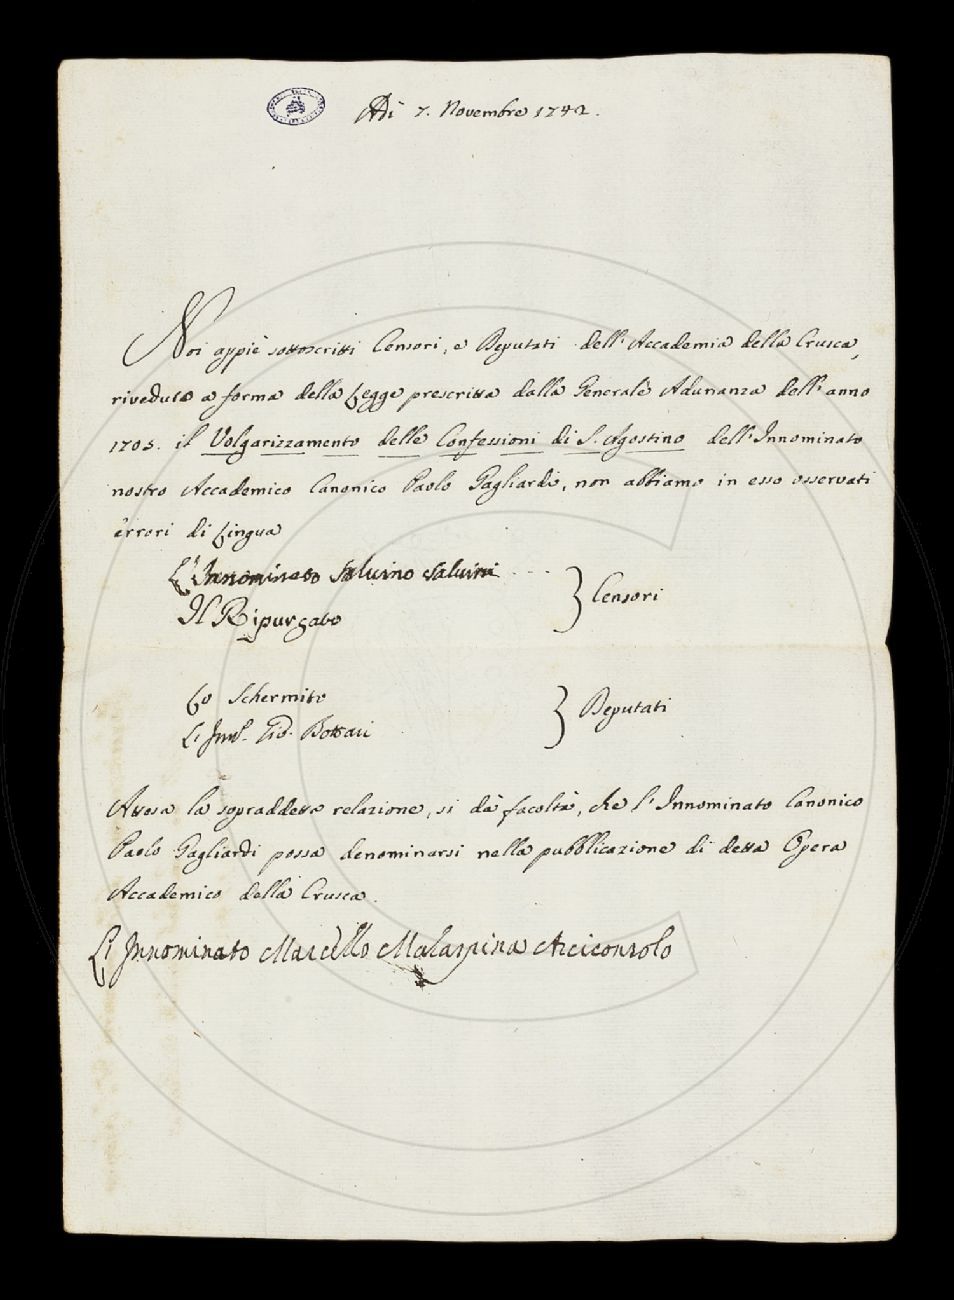 Adi 7. Novembre 1742.
Noi appiè sottoscritti Censori, e Deputati dell'Accademia della Crusca,
riveduto a forma della Legge prescritta dalla Generale Adunanza dell'anno
1705. il Volgarizzamento delle Confessioni di S. Agostino dell'Innominato
nostro Accademico Canonico Paolo Gagliardi, non abbiamo in esso osservati
errori di Lingua
L'Innominato Salvino Salvini
Il Ripurgato
} Censori
Lo Schermito
L'Inn.º Gio. Bottari
} Deputati
Attesa la sopraddetta relazione, si dà facoltà, che l'Innominato Canonico
Paolo Gagliardi possa denominarsi nella pubblicazione di detta Opera
Accademico della Crusca.
L'Innominato Marcello Malaspina Arciconsolo